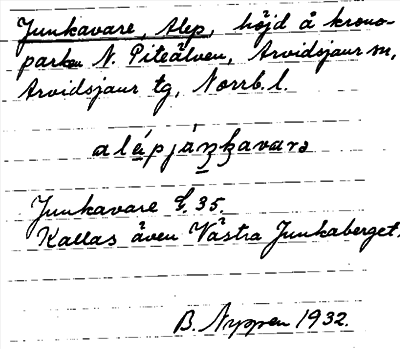 Junkavare, Alep, höjd å krono-
parken N. Piteälven, Arvidsjaur sn,
Arvidsjaur tg, Norrb. l.
Junkavare 35.
Kallas även Västra Junkaberget.
B. Nyppen 1932.